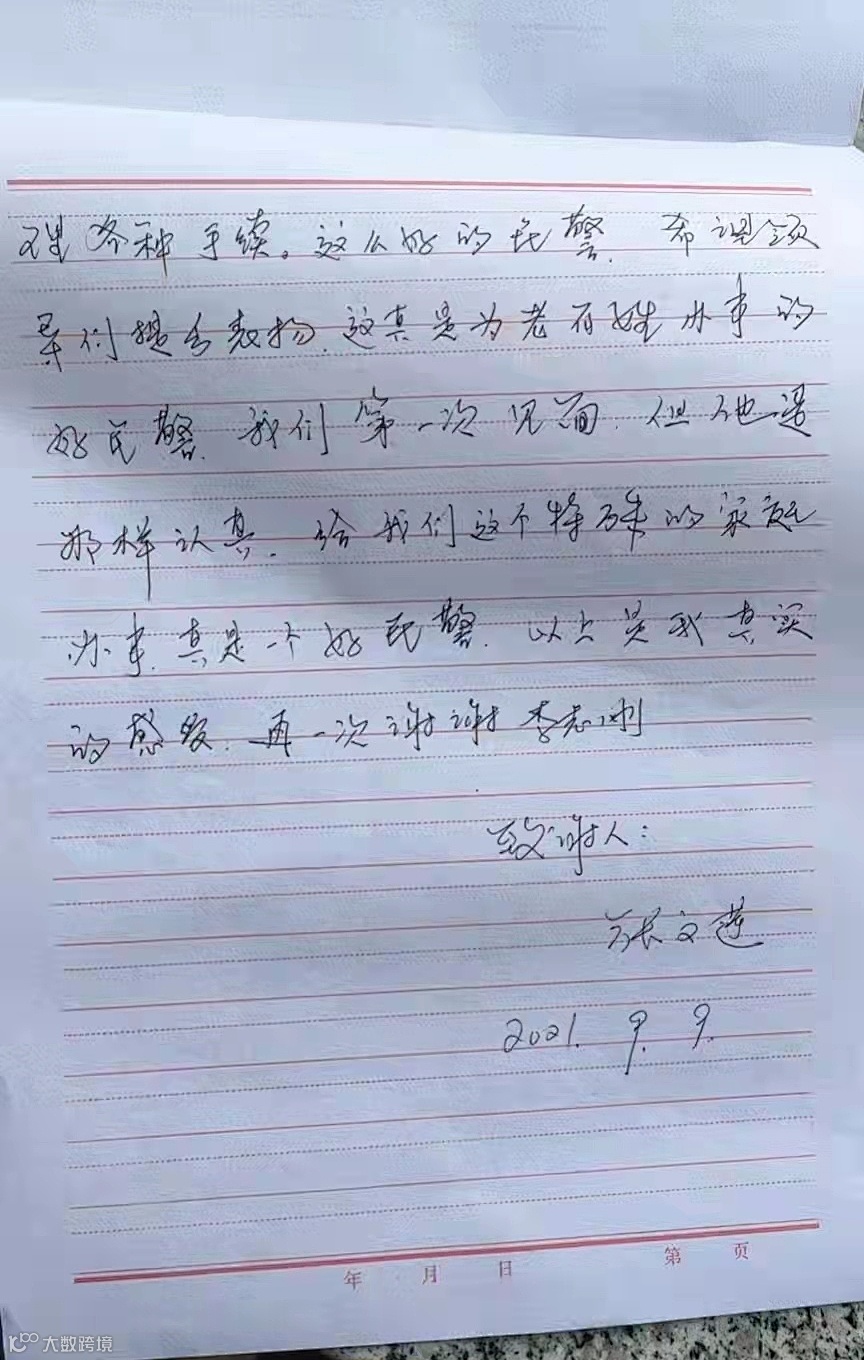 理各种手续。这么好的民警. 希望领
导们提出表扬. 这真是为老百姓办事的
好民警. 我们第一次见面. 但他是
那样认真. 给我们这个特殊的家庭
办事. 真是一个好民警. 以上是我真实
的感受. 再一次谢谢李志刚
致谢人:
张文莲
2021. 9. 9.
年 月 日 第 页
大数跨境